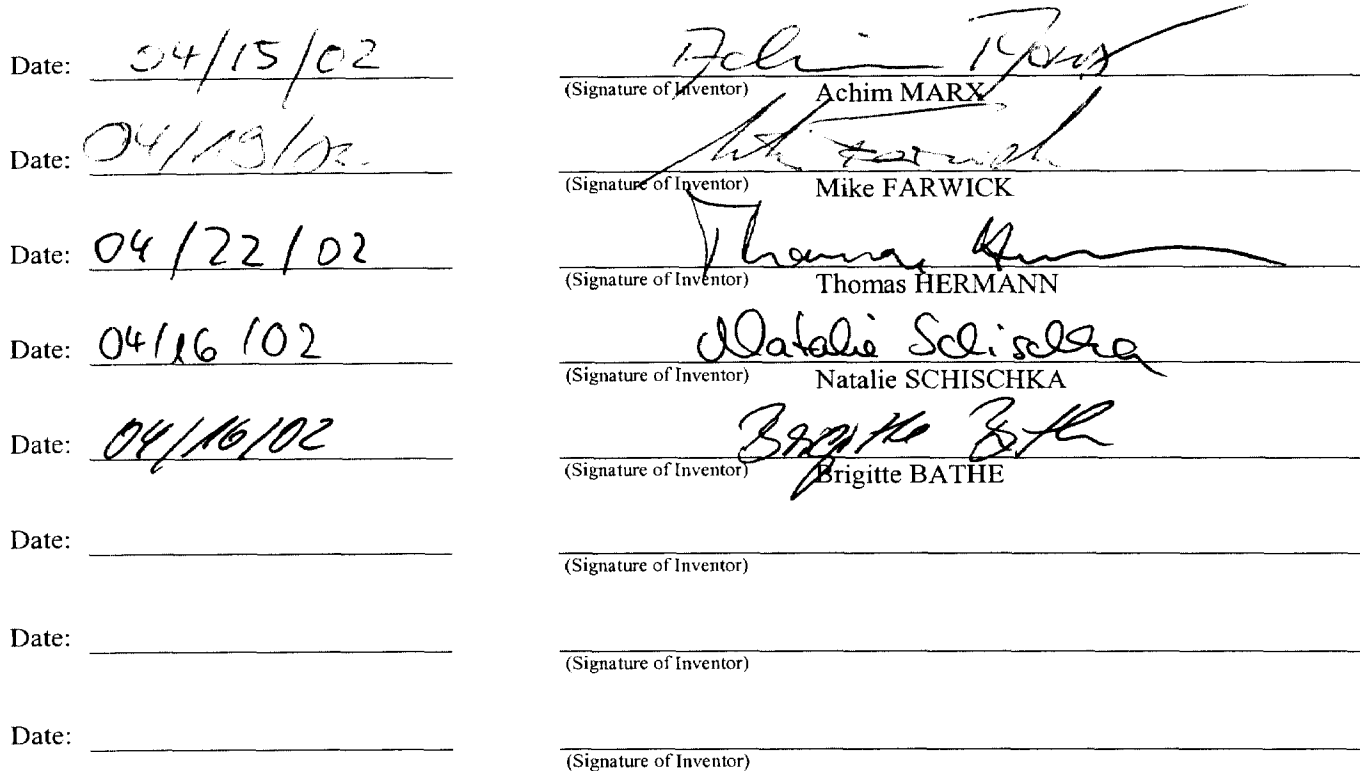 Date: 04/15/02 Achim Marx
(Signature of Inventor) Achim MARX
Date: 04/19/02 Mike Farwick
(Signature of Inventor) Mike FARWICK
Date: 04/22/02 Thomas Hermann
(Signature of Inventor) Thomas HERMANN
Date: 04/16/02 Natalie Schischka
(Signature of Inventor) Natalie SCHISCHKA
Date: 04/16/02 Brigitte Bathe
(Signature of Inventor) Brigitte BATHE
Date:
(Signature of Inventor)
Date:
(Signature of Inventor)
Date:
(Signature of Inventor)